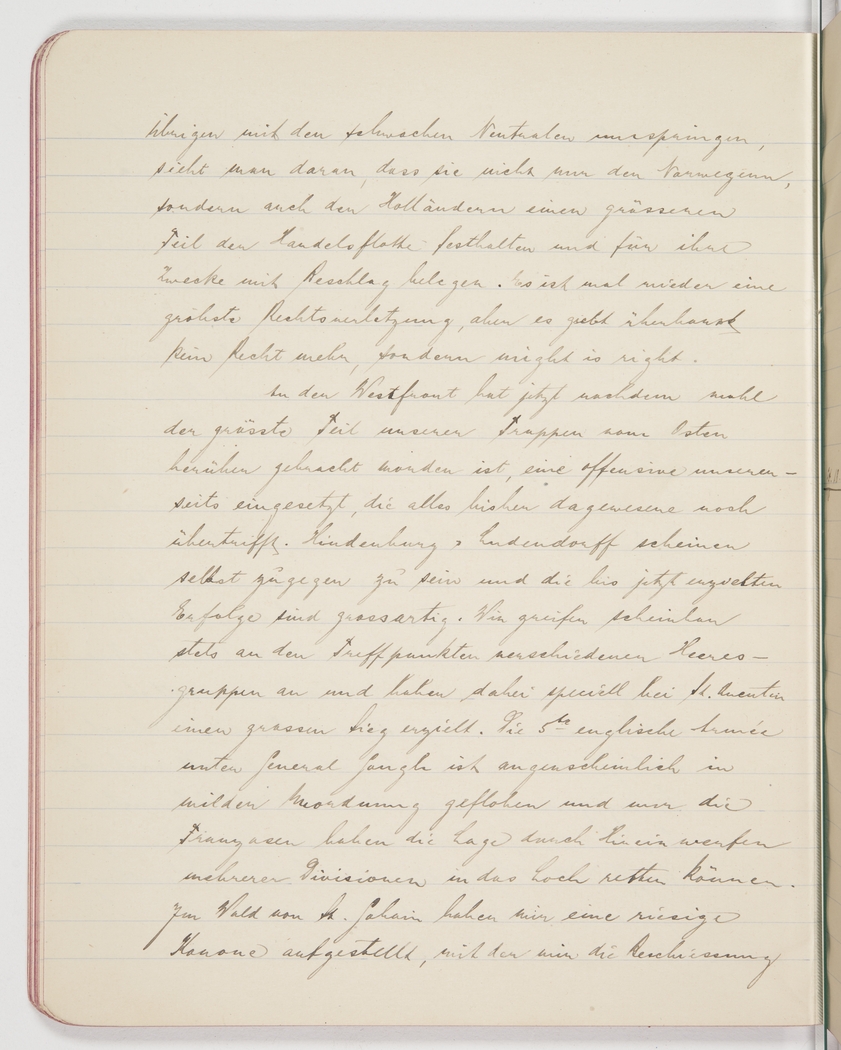 übrigen mit den schwachen Neutralen umspringen,
sieht man daran, dass sie nicht nur den Norwegern,
sondern auch den Holländern einen grösseren
Teil der Handelsflotte festhalten und für ihre
Zwecke mit Beschlag belegen. Es ist mal wieder eine
gröbste Rechtsverletzung, aber es giebt überhaupt
kein Recht mehr, sondern might is right.
An der Westfront hat jetzt nachdem wohl
der grösste Teil unserer Truppen vom Osten
herüber gebracht worden ist, eine offensive unserer-
seits eingesetzt, die alles bisher dagewesene noch
übertrifft. Hindenburg & Ludendorff scheinen
selbst zugegen zu sein und die bis jetzt erzielten
Erfolge sind grossartig. Wir greifen scheinbar
stets an den Treffpunkten verschiedener Heeres-
gruppen an und haben dabei speciell bei St. Quentin
einen grossen Sieg erzielt. Die 5te englische Armée
unter General Gough ist augenscheinlich in
wilder Unordnung geflohen und nur die
Franzosen haben die Lage durch Hineinwerfen
mehrerer Divisionen in das Loch retten können.
Im Wald von St. Gobain haben wir eine riesige
Kanone aufgestellt, mit der wir die Beschiessung